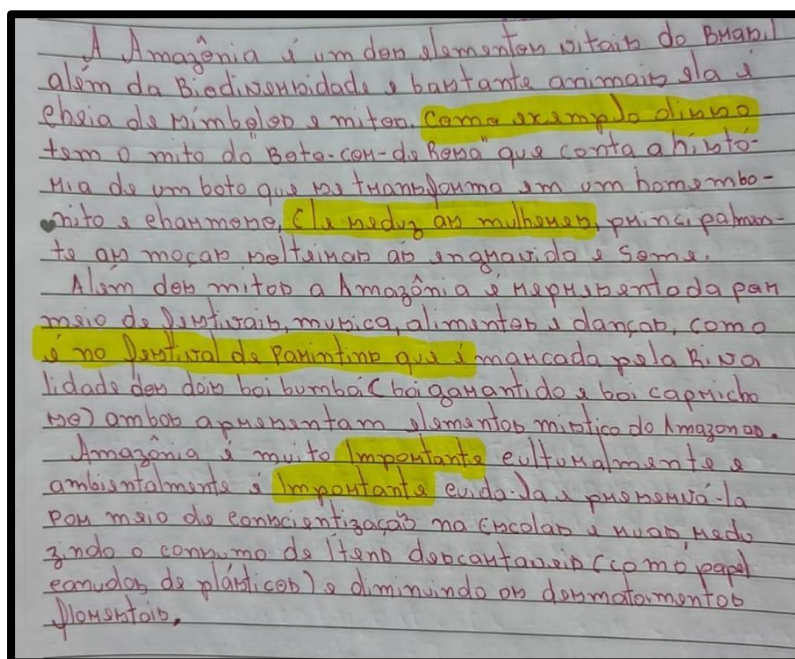 A Amazônia é um dos elementos vitais do Brasil
além da Biodiversidade e bastante animais ela é
cheia de símbolos e mitos, como exemplo disso
tem o mito do "Boto-cor-de Rosa" que conta a histó-
ria de um boto que se transforma em um homem bo-
nito e charmoso, ele seduz as mulheres, principalmen-
te as moças solteiras as engravida e some.
Além dos mitos a Amazônia é representada por
meio de festivais, musica, alimentos e danças, como
é no festival de Parintins que é marcada pela Riva
lidade dos dois boi bumbá (boi garantido e boi capricho
so) ambos apresentam elementos mistico do Amazonas.
Amazônia é muito Importante culturalmente e
ambientalmente é Importante cuida-la e preservá-la
por meio de conscientização na escolas e ruas, redu
zindo o consumo de Itens descartaveis (como papel
canudos de plásticos) e diminuindo os desmatormentos
florestais.